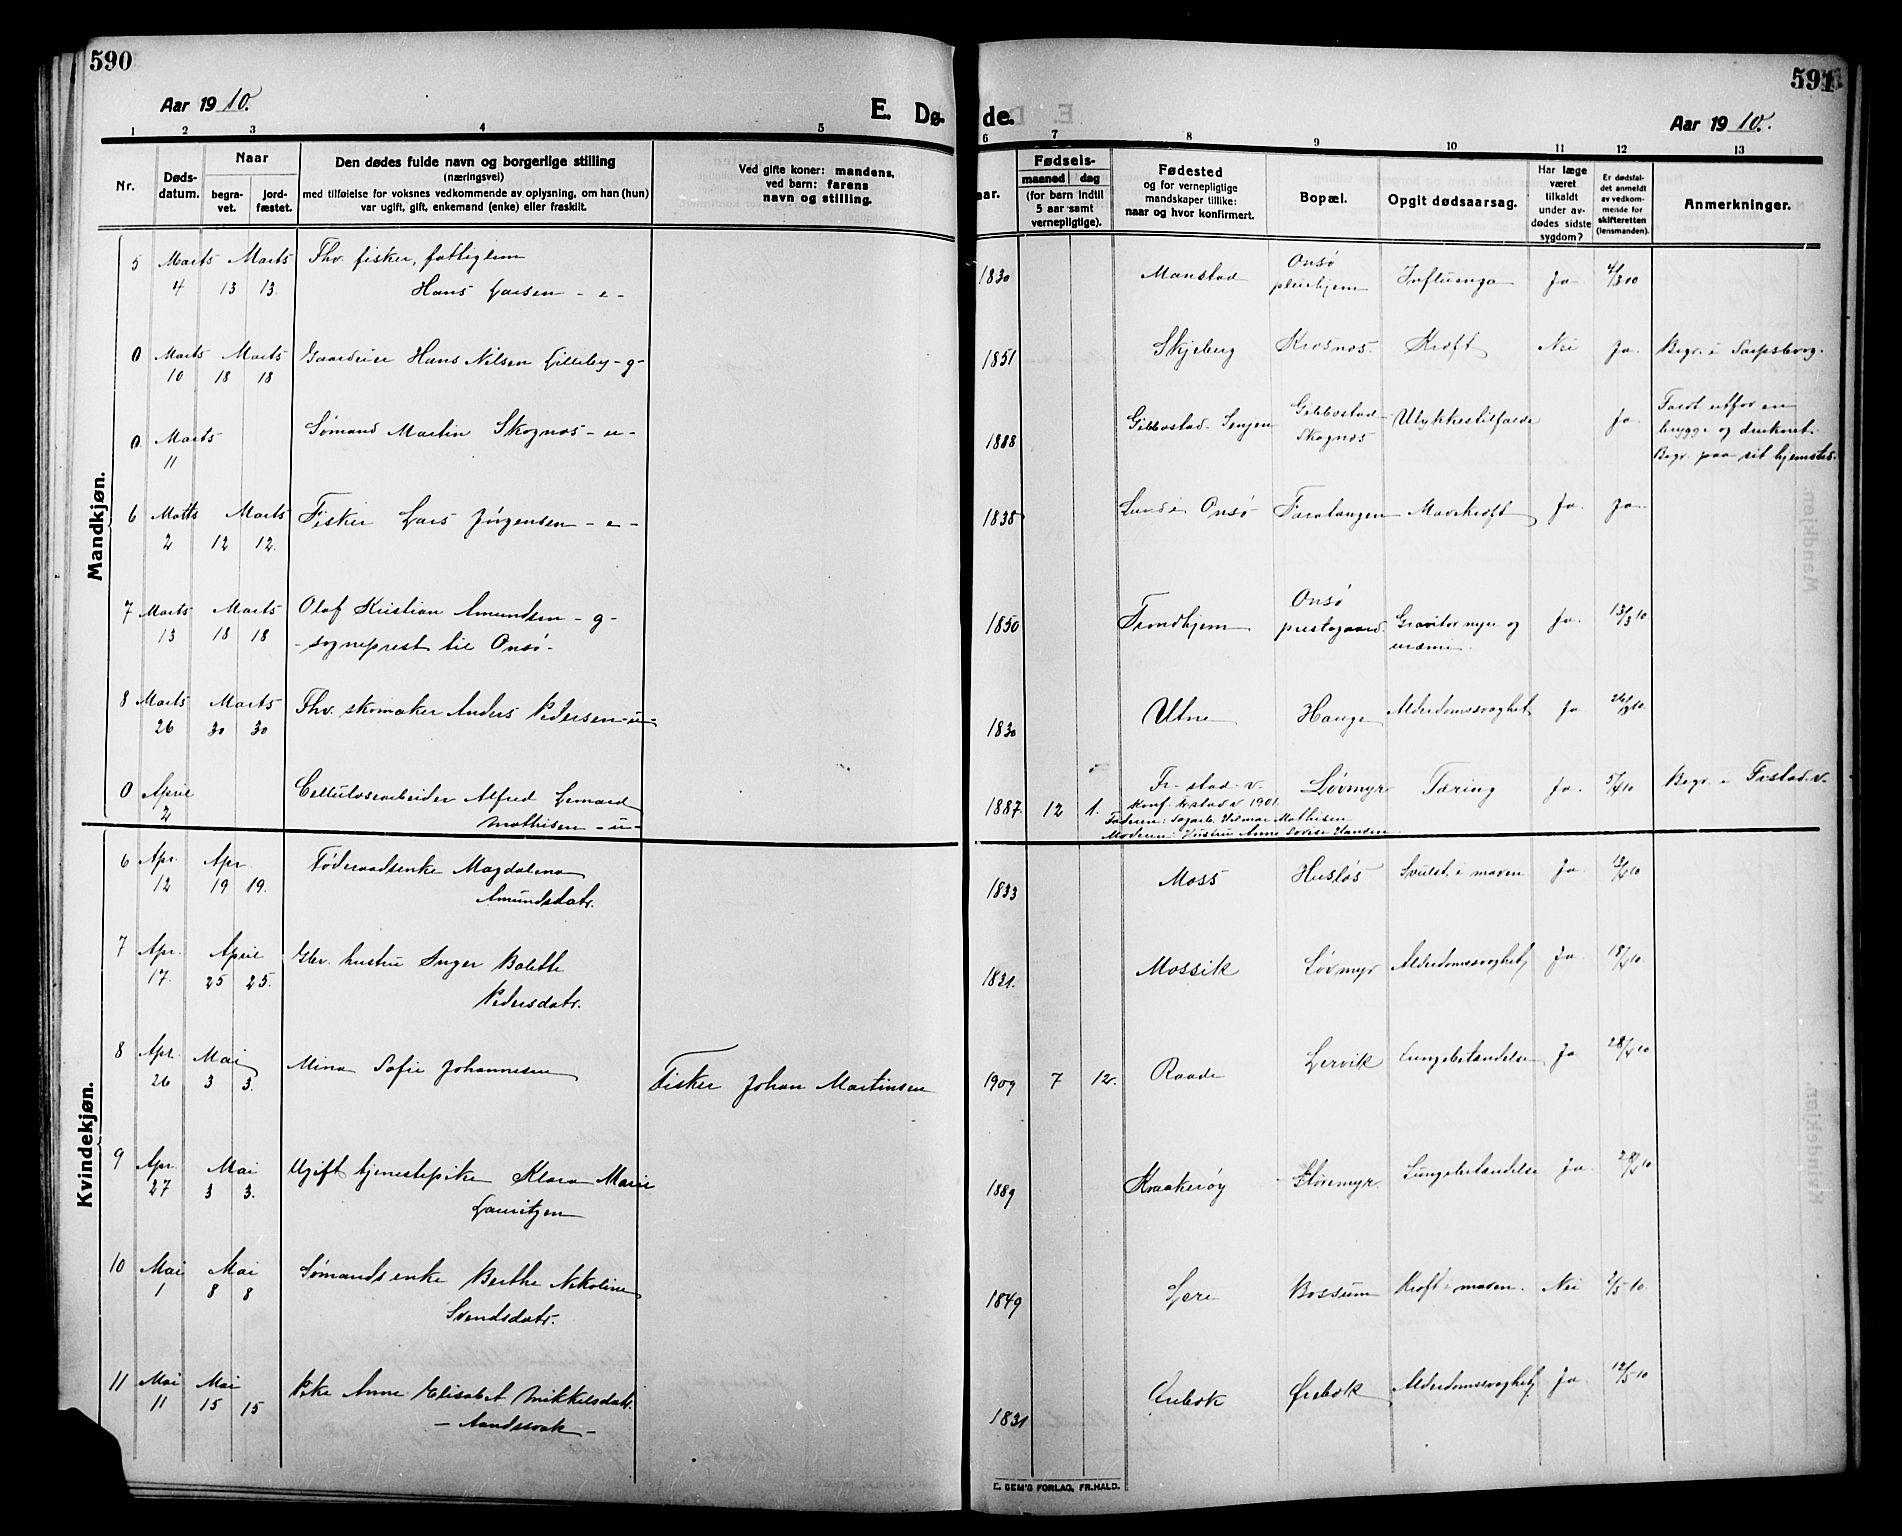 590
591
Aar 1910.
E. Dø-
de.
Aar 1910.
1 2 3 4 5 6 7 8 9 10 11 12 13
Nr.
Døds-
datum.
Naar
begra-
vet.
jord-
fæstet.
Den dødes fulde navn og borgerlige stilling
(næringsvei)
med tilføielse for voksnes vedkommende av oplysning, om han (hun)
var ugift, gift, enkemand (enke) eller fraskilt.
Ved gifte koner: mandens,
ved barn: farens
navn og stilling.
aar.
Fødsels-
maaned dag
(for barn indtil
5 aar samt
vernepligtige).
Fødested
og for vernepligtige
mandskaper tillike:
naar og hvor konfirmert.
Bopæl.
Opgit dødsaarsag.
Har læge
været
tilkaldt
under av-
dødes sidste
sygdom?
Er dødsfal-
det anmeldt
av vedkom-
mende for
skifteretten
(lensmanden).
Anmerkninger.
Mandkjøn.
5 Marts Marts Thv. fisker, fattiglem Onsø
4 13 13. Hans Larsen - e- 1830 Manstad pleiehjem Influenza Ja 4/3 10
0 Marts Marts Gaardeier Hans Nilsen Lilleby - g- 1851 Skjeberg Krosnes. Kræft Nei Ja. Begr. i Sarpsborg.
10 18 18
0 Marts Sømand Martin Skognæs - u- 1888 Gibbostad Senjen Gibbostad Ulykkestilfælde Ja. Faldt utfor en
11 Skognæs brygge og druknet.
Begr. paa sit hjemsted.
6 Marts Marts Fisker Lars Jørgensen - e- 1838 Lunde Onsø Faratangen Mavekræft Ja Ja
2 12 12.
7 Marts Marts Olaf Kristian Amundsen - g- 1850 Trondhjem Onsø Ja. 13/3 10
13 18 18 - sogneprest til Onsø - prestegaard nyre og
uræmi.
8 Marts Marts Thv. skomaker Anders Pedersen - u- 1830 Utne Hauge Alderdomssvaghet Ja 26/3 10.
26 30 30
0 April Cellulosearbeider Alfred Lenard 1887 12 1. Fr-stad v. Løvmyr Tæring Ja. 5/4 10 Begr. i Frstad. v.
2 Mathisen - u- Konf. Frstad v 1901.
Faderen: Sagarb. Hilmar Mathisen
Moderen: Hustru Anne Lovise Hansen
Kvindekjøn.
6 Apr. Apr. Føderaadsenke Magdalena 1833 Moss Husløs Svulst i maven Ja. 13/4 10
12 19 19. Amundsdatr.
7 Apr. April Glev. hustru Inger Bolette 1831. Mossik Løvmyr Alderdomssvaghet Ja. 18/4 10
17. 25 25. Pedersdatr.
8 Apr. Mai Mina Sofie Johannesen Fisker Johan Martinsen 1909 7 12. Raade Lervik Lungebetændelse Ja 28/4 10
26 3 3.
9 Apr. Mai Ugift tjenestepike Klara Marie 1889 Kraakerøy Lungebetændelse Ja.
27 3 3. Lauritzen
10 Mai Mai Sømandsenke Berthe Nikoline 1849 Lere Bossum Kræft i maven. Nei 2/5 10.
1 8 8 Svendsdatr.
11 Mai Mai Pike Anne Elisabet Mikkelsdatr. 1831 Ørebæk Ørebæk Alderdomssvaghet Ja 12/5 10
11 15 15 - Aandssvak -
E. SEM'S FORLAG, FR.HALD.